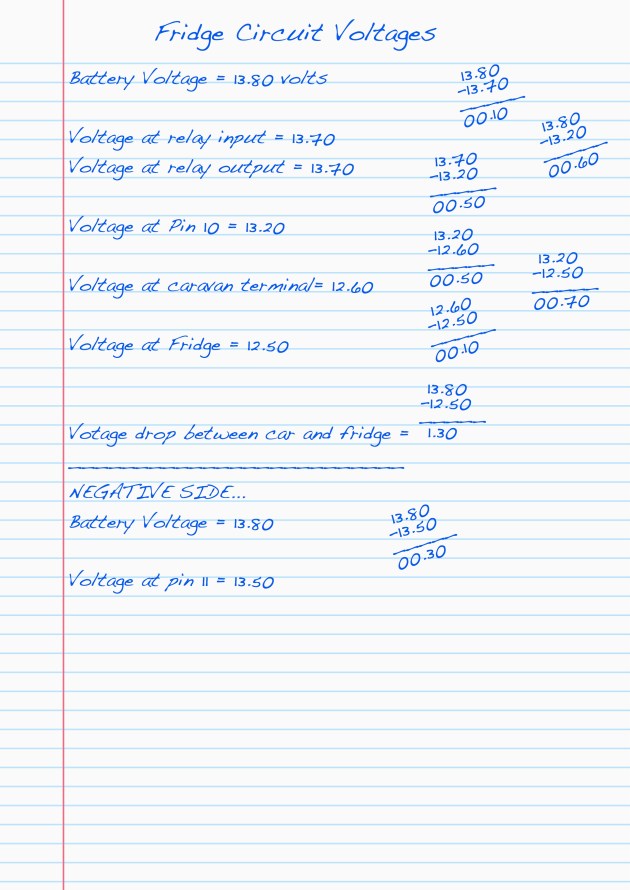 Fridge Circuit Voltages
Battery Voltage = 13.80 volts
13.80
-13.70
00.10
Voltage at relay input = 13.70
13.80
-13.20
00.60
Voltage at relay output = 13.70
13.70
-13.20
00.50
Voltage at Pin 10 = 13.20
13.20
-12.60
00.50
Voltage at caravan terminal= 12.60
13.20
-12.50
00.70
12.60
-12.50
00.10
Voltage at Fridge = 12.50
13.80
-12.50
Votage drop between car and fridge = 1.30
NEGATIVE SIDE...
Battery Voltage = 13.80
13.80
-13.50
00.30
Voltage at pin 11 = 13.50